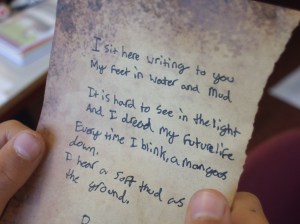 I sit here writing to you
My feet in water and mud
It is hard to see in the light
And I dread my future life
Every time I blink, a man goes
down.
I hear a soft thud as
the ground.